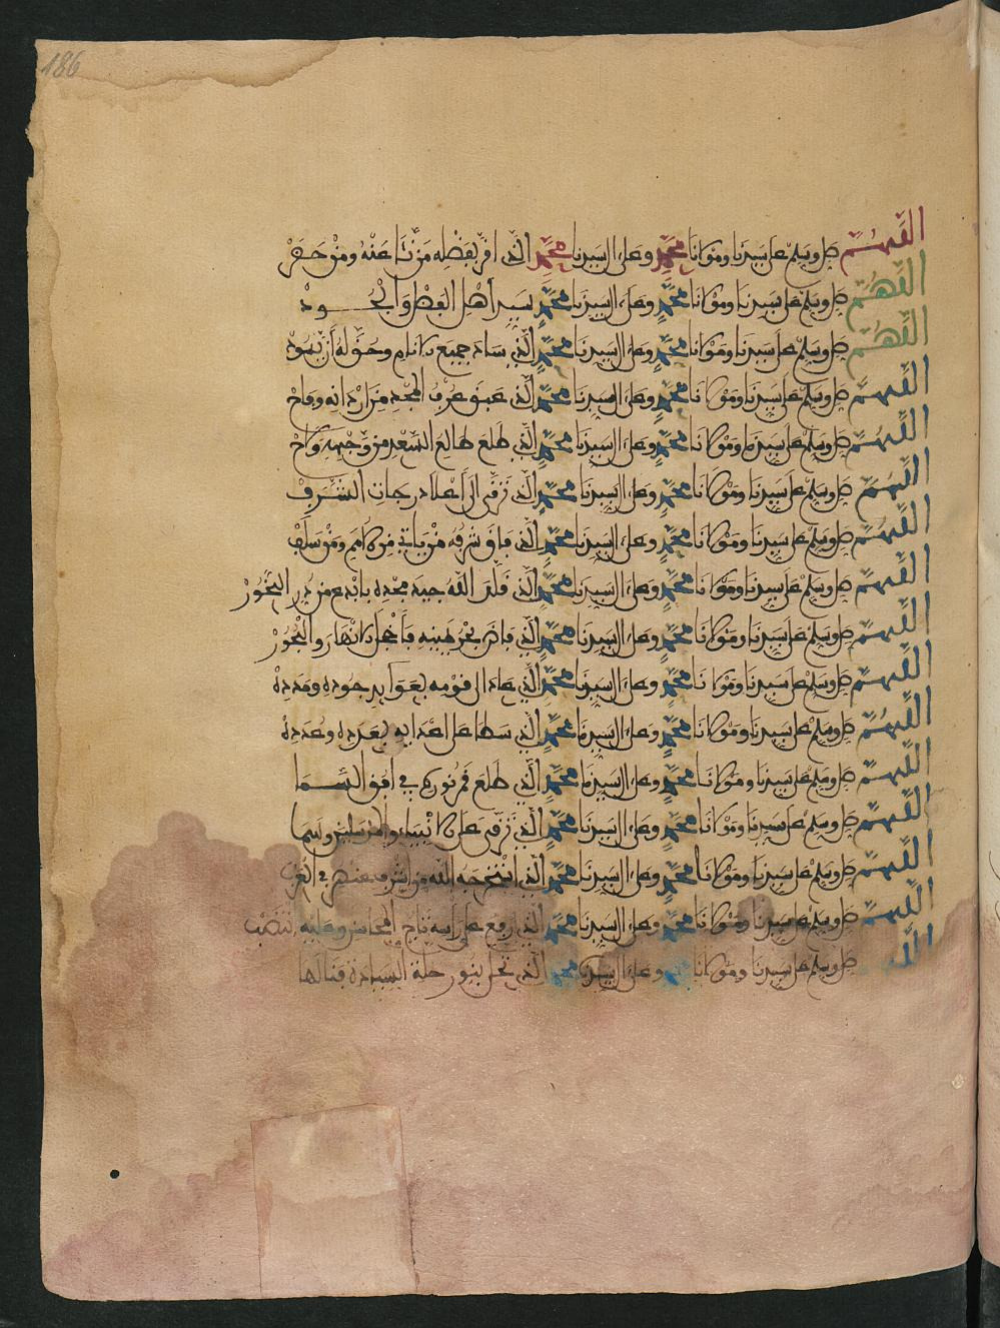 186
اللهم صل وسلم على سيدنا ومولانا محمد وعلى ال سيدنا محمد الذي اقر بفضله من نشا عنه ومن حضر
اللهم صل وسلم على سيدنا ومولانا محمد وعلى ال سيدنا محمد سيد اهل الفضل والجود
اللهم صل وسلم على سيدنا ومولانا محمد وعلى ال سيدنا محمد الذي ساد جميع الانام وحق له ان يسود
اللهم صل وسلم على سيدنا ومولانا محمد وعلى ال سيدنا محمد الذي عبق عرف المجد من اردانه وفاح
اللهم صل وسلم على سيدنا ومولانا محمد وعلى ال سيدنا محمد الذي طلع طالع السعد من وجهه ولاح
اللهم صل وسلم على سيدنا ومولانا محمد وعلى ال سيدنا محمد الذي ترقى الى اعلا درجات الشرف
اللهم صل وسلم على سيدنا ومولانا محمد وعلى ال سيدنا محمد الذي فاق شرفه من ياتي من الامم ومن سلف
اللهم صل وسلم على سيدنا ومولانا محمد وعلى ال سيدنا محمد الذي قلد الله جيد مجده بابدع من درر النحور
اللهم صل وسلم على سيدنا ومولانا محمد وعلى ال سيدنا محمد الذي فاض بحر يمينه فاخجل الانهار والبحور
اللهم صل وسلم على سيدنا ومولانا محمد وعلى ال سيدنا محمد الذي عاد الى قومه بعوايد جوده ومدده
اللهم صل وسلم على سيدنا ومولانا محمد وعلى ال سيدنا محمد الذي سطا على اعدايه بعدده وعدده
اللهم صل وسلم على سيدنا ومولانا محمد وعلى ال سيدنا محمد الذي طلع قمر نوره في افق السما
اللهم صل وسلم على سيدنا ومولانا محمد وعلى ال سيدنا محمد الذي ترقى على الانبياء والمرسلين وسما
اللهم صل وسلم على سيدنا ومولانا محمد وعلى ال سيدنا محمد الذي الله من في العرب
اللهم صل وسلم على سيدنا ومولانا محمد وعلى ال سيدنا محمد الذي رفع على راسه تاج المحاسن وعليه
صل وسلم على سيدنا ومولانا محمد وعلى ال سيدنا محمد الذي حلة السيادة فنالها